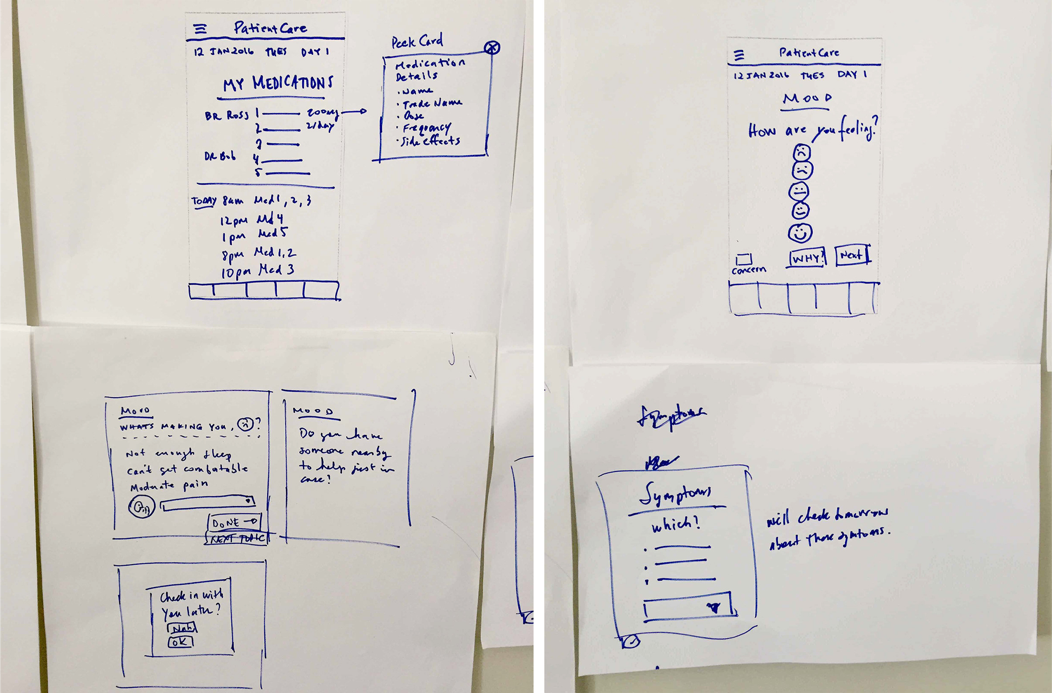 PatientCare
12 JAN 2016 TUES DAY 1
MY MEDICATIONS
DR Ross 1 200mg
2 2/day
3
DR Bob 4
5
TODAY 8am Med 1, 2, 3
12pm Md 4
1pm Med 5
8pm Med 1, 2
10pm Med 3
Peek Card
Medication
Details
• Name
• Trade Name
• Dose
• Freqency
• Side effects
PatientCare
12 JAN 2016 TUES DAY 1
MOOD
How are you feeling?
Concern
WHY?
Next
MOOD
WHATS MAKING YOU, ?
Not enough sleep
Can't get comfortable
Moderate pain
DONE →
NEXT TOPIC
MOOD
Do you have
someone nearby
to help just in
case?
Check in with
you later?
Nah
OK
Symptoms
Symptoms
which?
will check tomorrow
about those symptoms.